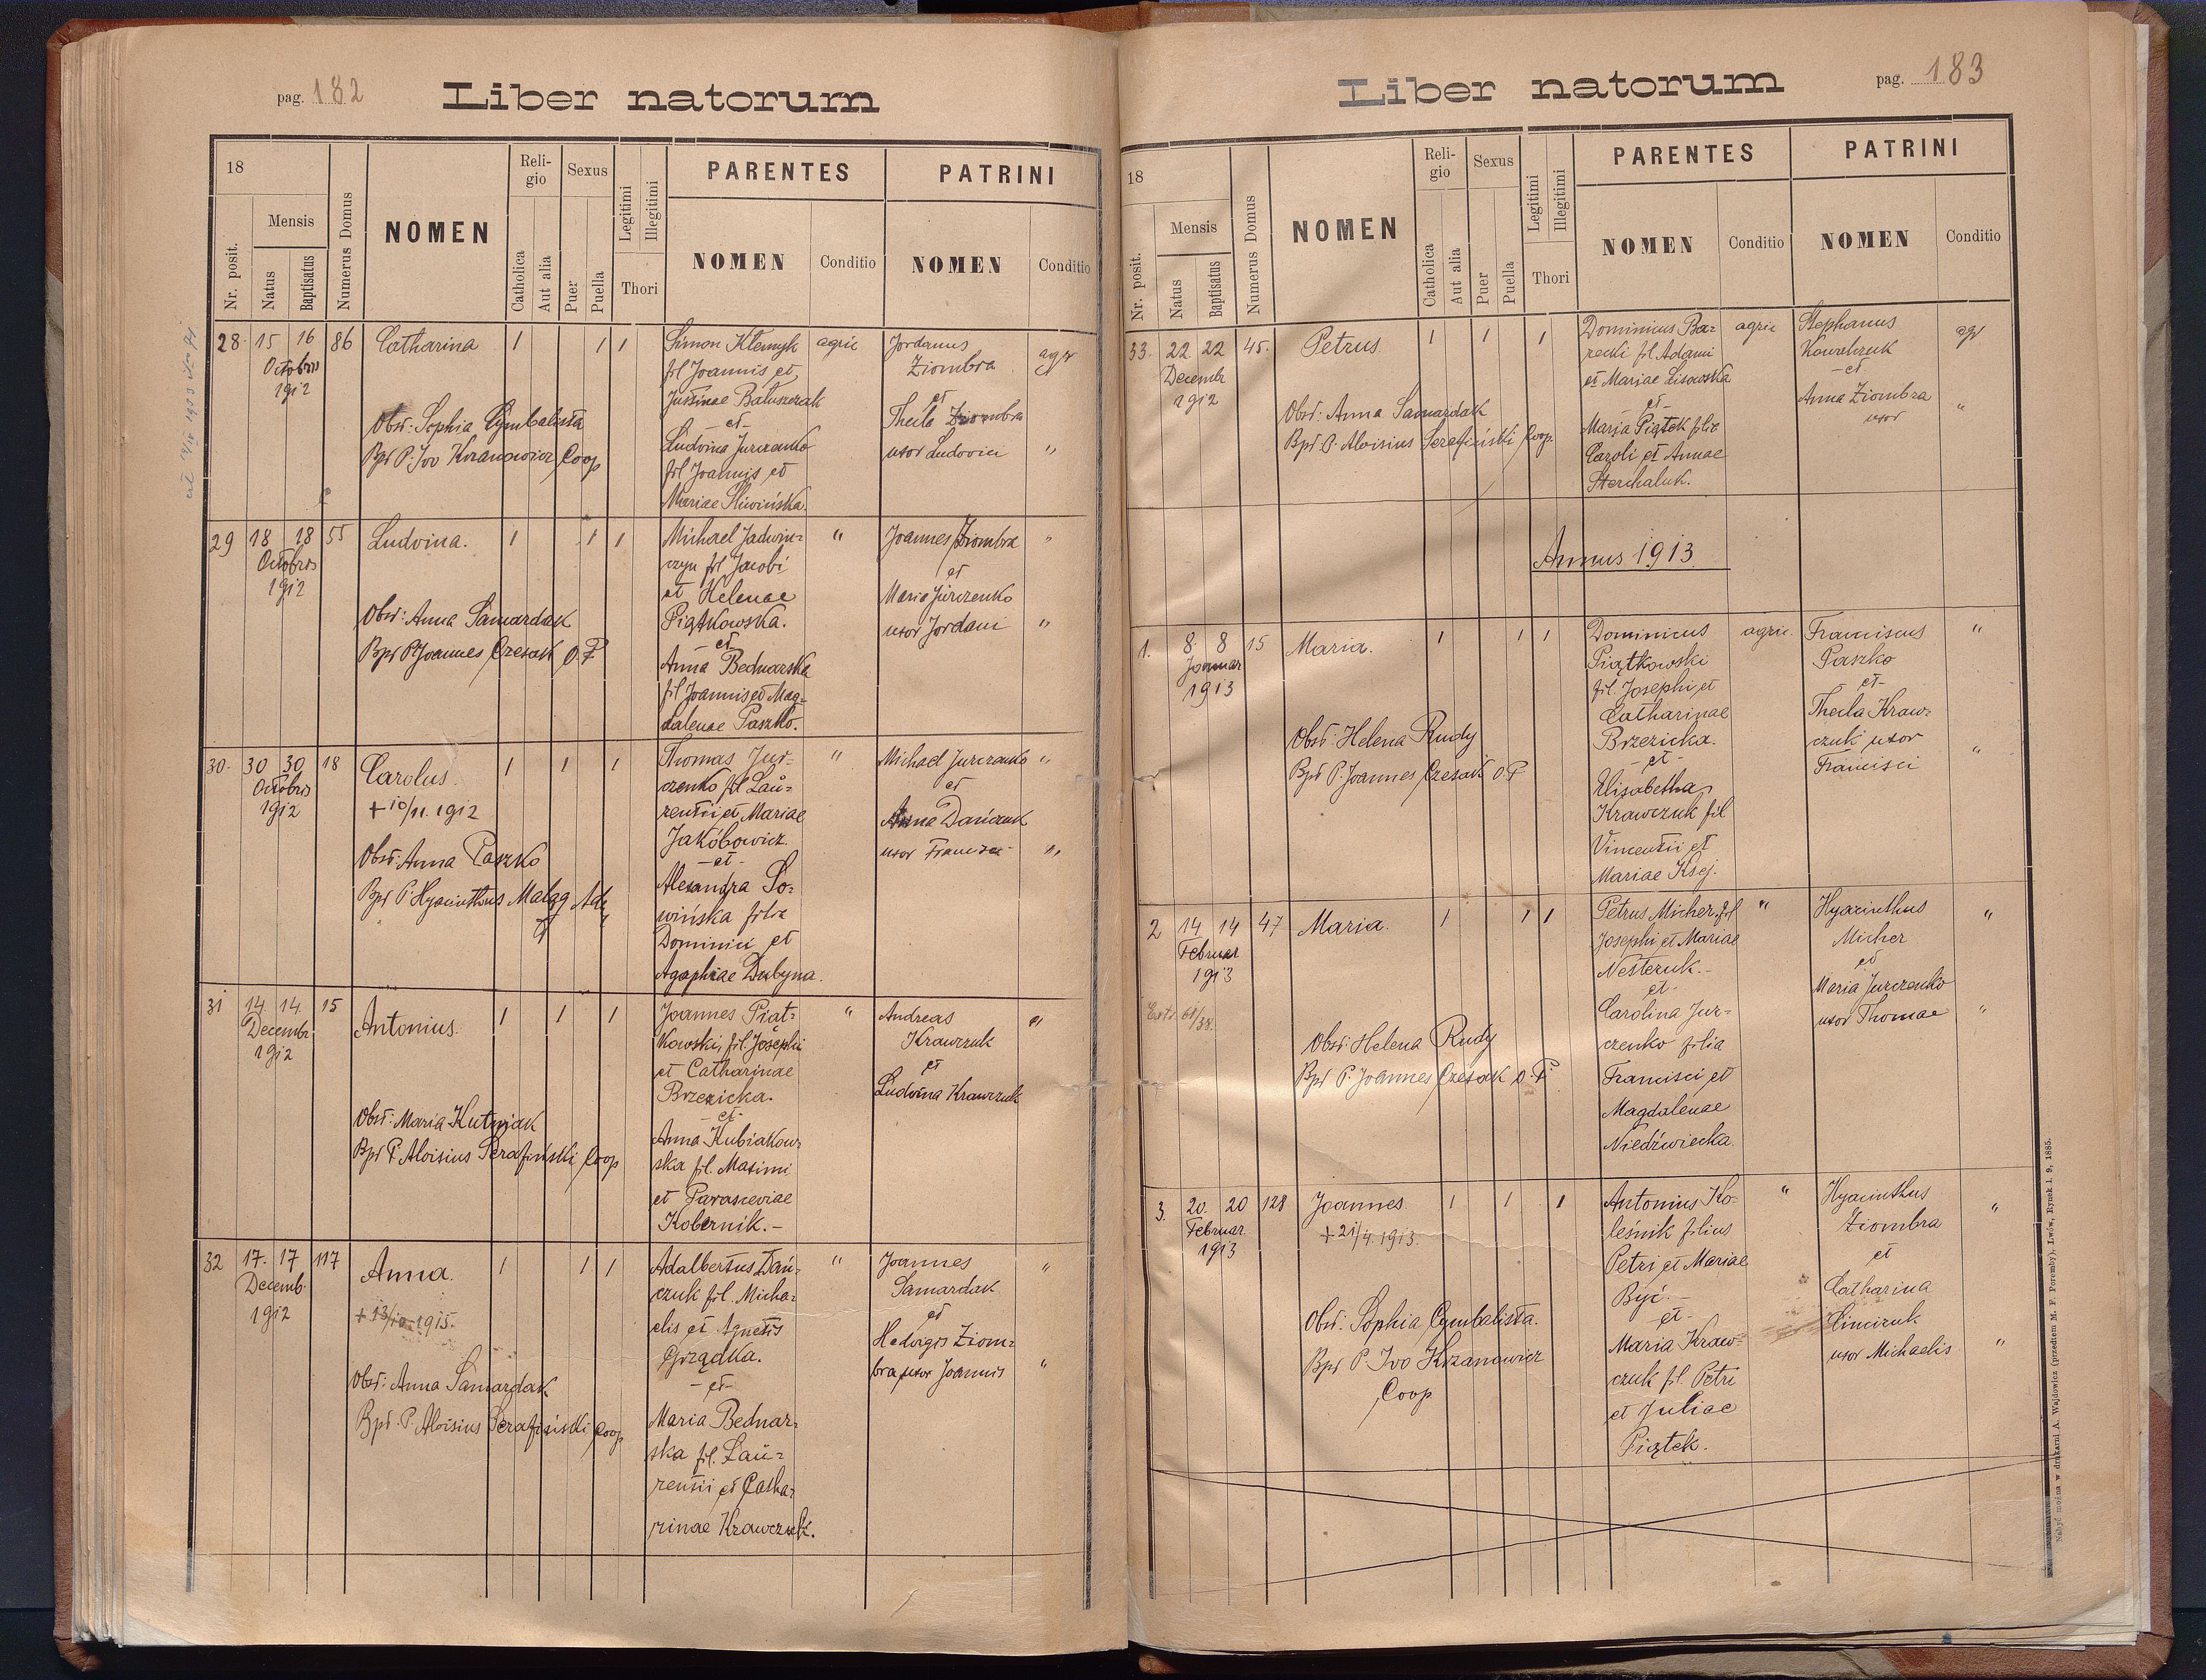 pag. 182
Liber natorum
18
Mensis
Nr. posit.
Natus
Baptisatus
Numerus Domus
NOMEN
Reli-
gio
Catholica
Aut alia
Sexus
Puer
Puella
Legitimi
Illegitimi
Thori
PARENTES
NOMEN
Conditio
PATRINI
NOMEN
Conditio
28. 15 16 86 Catharina 1 1 1
Octobris
1912
Obst: Sophia Cymbalista
Bpt P. Ivo Coop
Simon Klemyk agric
fil Joannis et
Justinae
-et-
Ludovina Jurczenko
fil Joannis et
Mariae Śliwińska.
Jordanus agr
Ziombra
et
Thecla Ziombra
uxor Ludovici "
29 18 18 55 Ludovina. 1 1 1
Octobris
1912
Obst: Anna Samardak
Bpt P. Joannes Czesak O.F
Michael Jadwin- "
czyn fil Jacobi
et Helenae
Piątkowska.
-et-
Anna Bednarska
fil Joannis et Mag-
dalenae Paszko.
Joannes Ziombra "
et
Maria Jurczenko
uxor Jordani "
30. 30 30 18 Carolus. 1 1 1
Octobris
1912
+ 10/11. 1912
Obst: Anna Paszko
Bpt P. Hyacinthus
Thomas Jur- "
czenko fil Lau-
rentii et Mariae
Jakóbowicz.
-et-
Alexandra So-
wińska filia
Dominici et
Agaphiae Dubyna.
Michael Jurczenko "
et
Anna Dańczuk
uxor Francisci "
31 14 14 15 Antonius. 1 1 1
Decembr
1912
Obst: Maria Kutniak
Bpt P. Aloisius Serafiński Coop
Joannes Piąt- "
kowski, fil. Josephi
et Catharinae
Brzezicka.
-et-
Anna Kubiakow-
ska fil. Maximi
et Parasceviae
Kobernik.-
Andreas "
Krawczuk
et
Ludovina Krawczuk
32 17. 17 117 Anna. 1 1 1
Decemb.
1912
+ 13/10 1915.
Obst: Anna Samardak
Bpt. P. Aloisius Serafiński Coop
Adalbertus Dań- "
czuk fil. Micha-
elis et Agnetis
Grządka.
-et-
Maria Bednar-
ska fil. Lau-
rentii et Catha-
rinae Krawczuk.
Joannes "
Samardak
et
Hedvigis Ziom-
bra uxor Joannis "
pag. 183
Liber natorum
18
Mensis
Nr. posit.
Natus
Baptisatus
Numerus Domus
NOMEN
Reli-
gio
Catholica
Aut alia
Sexus
Puer
Puella
Legitimi
Illegitimi
Thori
PARENTES
NOMEN
Conditio
PATRINI
NOMEN
Conditio
33. 22 22 45. Petrus. 1 1 1
Decembr
1912
Obst: Anna Samardak
Bpt P. Aloisius Serafiński Coop.
Dominicus Ba- agric
recki fil Adami
et Mariae Lisowska
-et-
Maria Piątek filia
Caroli et Annae
Sterchaluk.
Stephanus agr
Kowalczuk
-et-
Anna Ziombra "
uxor
Annus 1913.
1. 8 8 15 Maria. 1 1 1
Januar
1913
Obst: Helena Rudy
Bpt P. Joannes Czesak O.F
Dominicus agric.
Piątkowski
fil. Josephi et
Catharinae
Brzezicka.
-et-
Elisabetha
Krawczuk fil
Vincentii et
Mariae Ksej.
Franciscus "
Paszko
et-
Thecla Kraw-
czuk uxor "
Francisci
2 14 14 47 Maria. 1 1 1
Februar
1913
Obst: Helena Rudy
Bpt P. Joannes Czesak O.F
Petrus Micher, fil "
Josephi et Mariae
Nesteruk.-
et-
Carolina Jur-
czenko filia
Francisci et
Magdalenae
Niedźwiecka.
Hyacinthus "
Micher
et
Maria Jurczenko
uxor Thomae "
3. 20. 20 128 Joannes. 1 1 1
Februar.
1913
+ 21/4. 1913.
Obst: Sophia Cymbalista.
Bpt P. Ivo Krzanowicz
Coop
Antonius Ko- "
leśnik filius
Petri et Mariae
Być.-
-et-
Maria Kraw-
czuk fil. Petri
et Juliae
Piątek.
Hyacinthus "
Ziombra
et
Catharina
uxor Michaelis "
Nabyć można w drukarni A. Wajdowicz (przedtem M. F. Poremby), Lwów, Rynek l. 9, 1885.